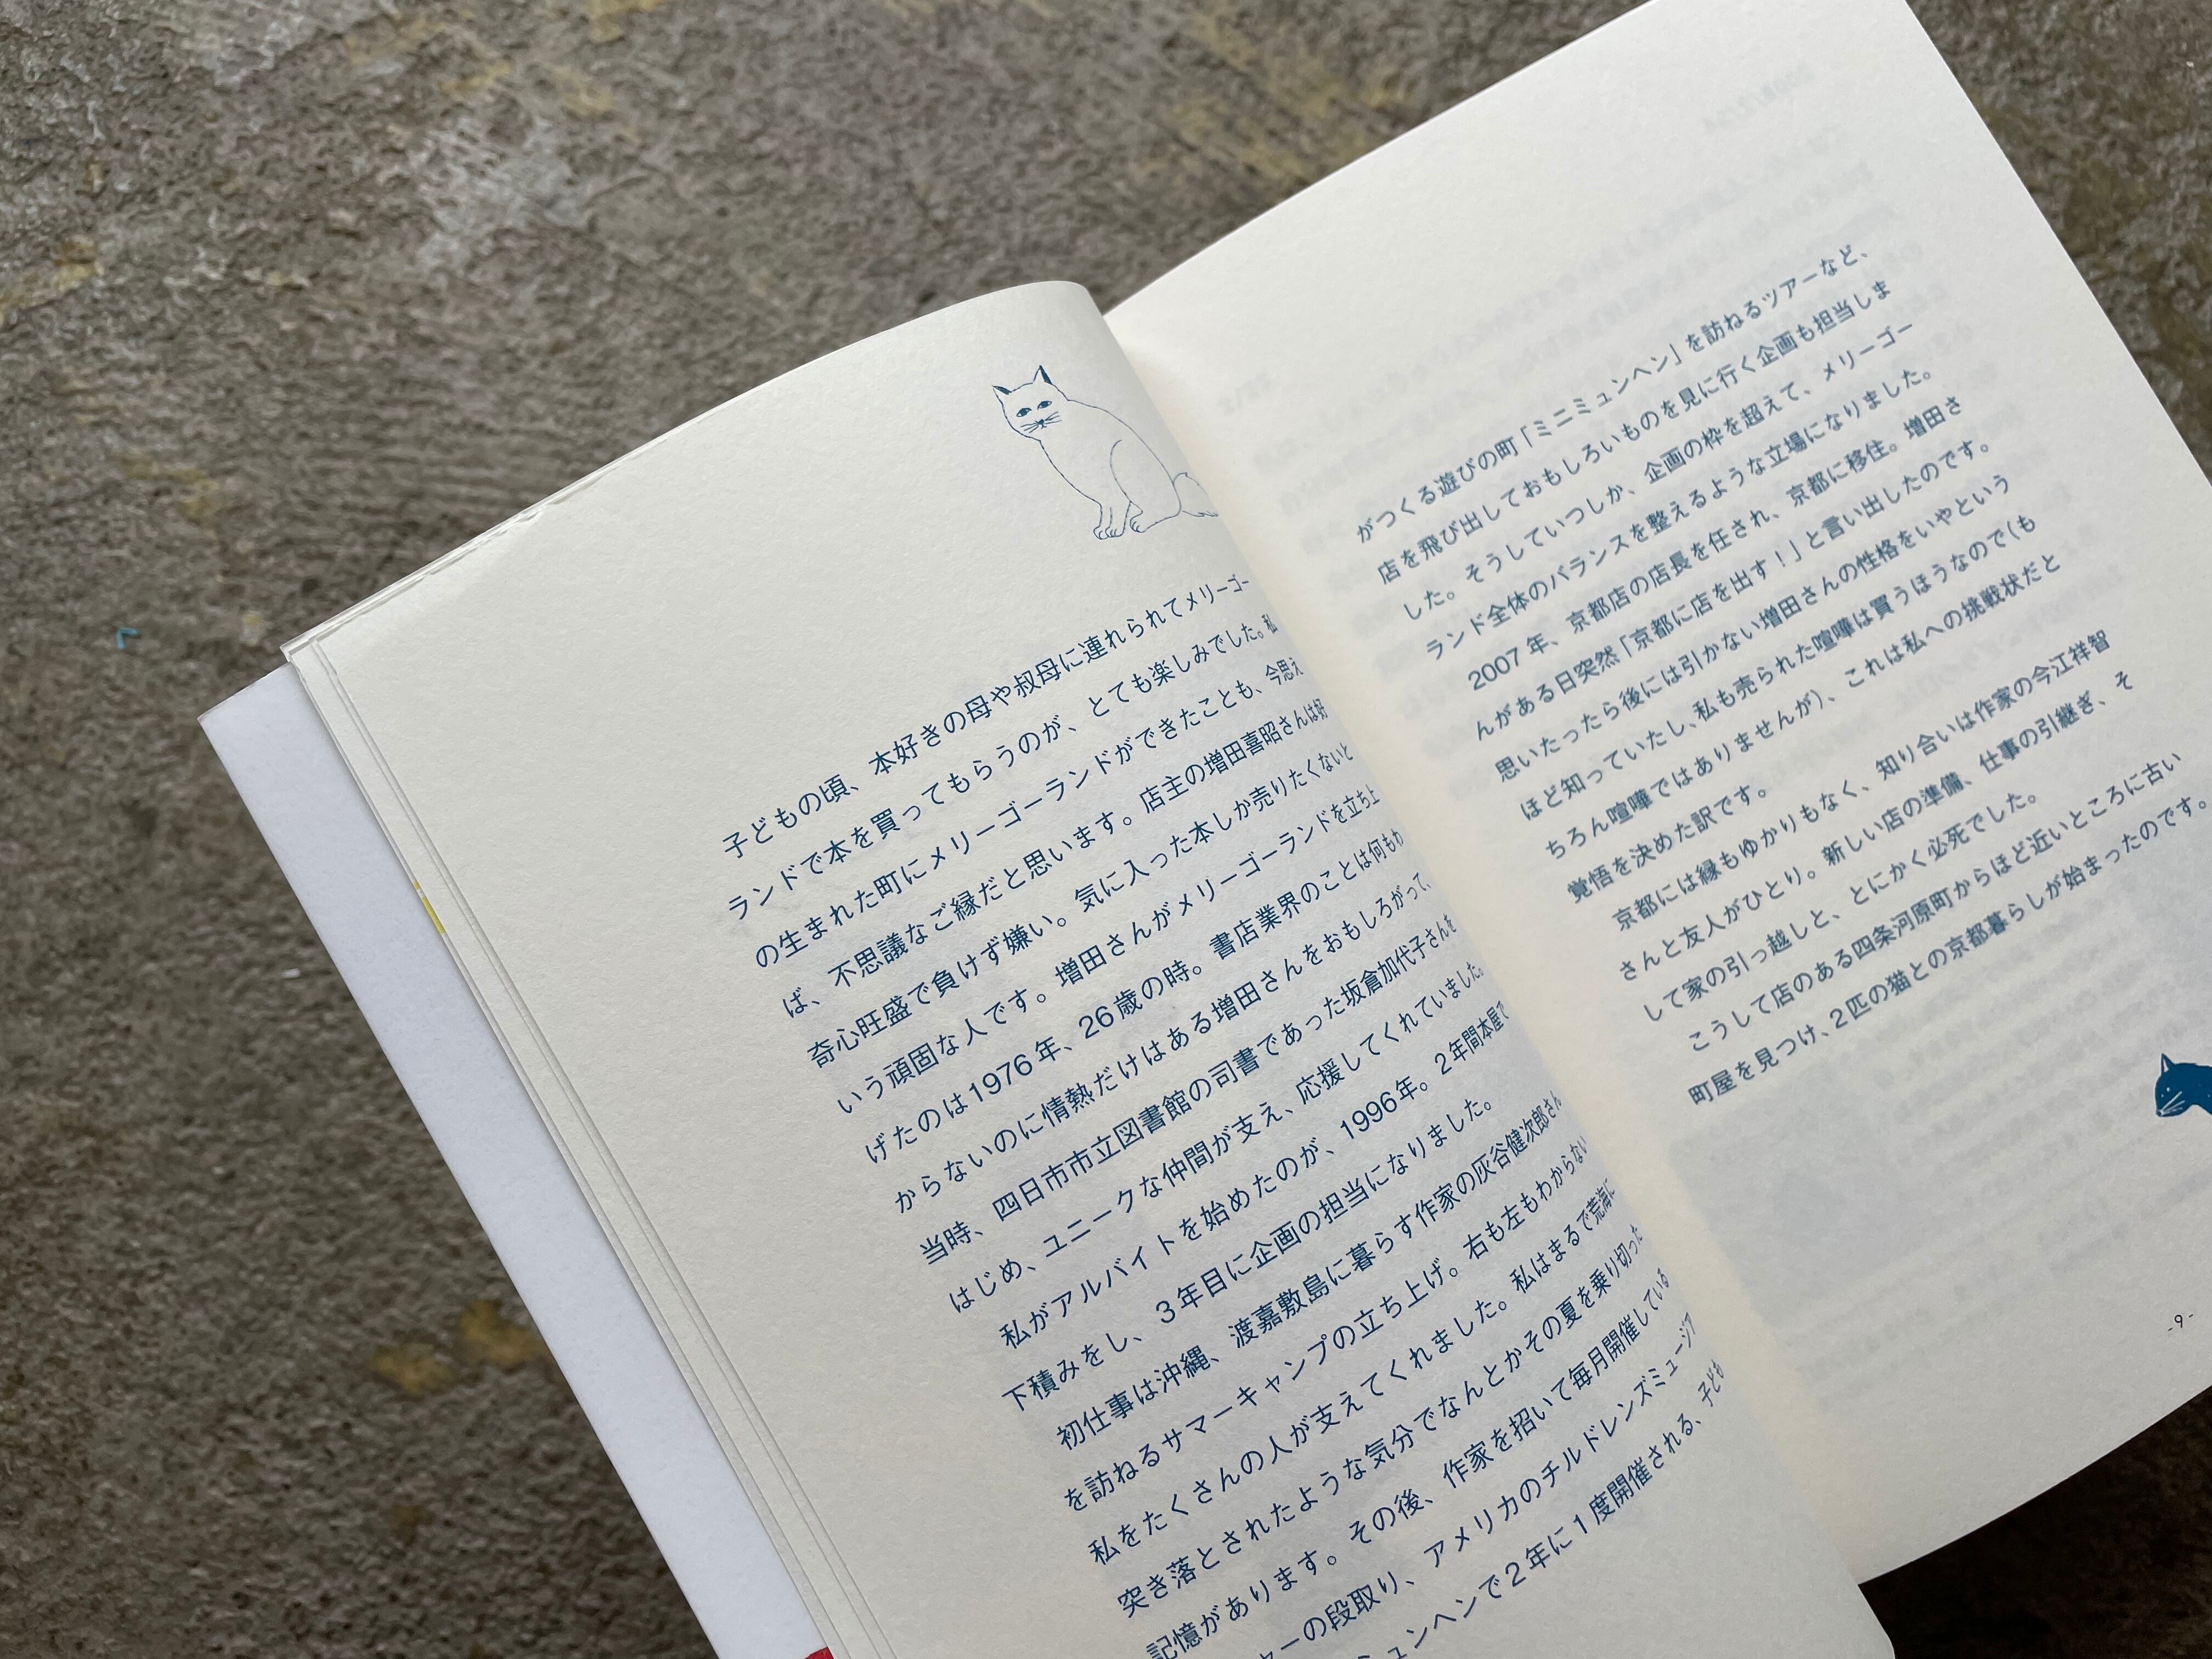 子どもの頃、本好きの母や叔母に連れられてメリーゴー
ランドで本を買ってもらうのが、とても楽しみでした。私
の生まれた町にメリーゴーランドができたことも、今思え
ば、不思議なご縁だと思います。店主の増田喜昭さんは好
奇心旺盛で負けず嫌い。気に入った本しか売りたくないと
いう頑固な人です。増田さんがメリーゴーランドを立ち上
げたのは1976年、26歳の時。書店業界のことは何もわ
からないのに情熱だけはある増田さんをおもしろがって、
当時、四日市市立図書館の司書であった坂倉加代子さんを
はじめ、ユニークな仲間が支え、応援してくれていました。
私がアルバイトを始めたのが、1996年。2年間本屋で
下積みをし、3年目に企画の担当になりました。
初仕事は沖縄、渡嘉敷島に暮らす作家の灰谷健次郎さん
を訪ねるサマーキャンプの立ち上げ。右も左もわからない
私をたくさんの人が支えてくれました。私はまるで荒海に
突き落とされたような気分でなんとかその夏を乗り切った
記憶があります。その後、作家を招いて毎月開催している
ーの段取り、アメリカのチルドレンズミュージア
ュンヘンで2年に1度開催される、子ども
がつくる遊びの町「ミニミュンヘン」を訪ねるツアーなど、
店を飛び出しておもしろいものを見に行く企画も担当しま
した。そうしていつしか、企画の枠を超えて、メリーゴー
ランド全体のバランスを整えるような立場になりました。
2007年、京都店の店長を任され、京都に移住。増田さ
んがある日突然「京都に店を出す！」と言い出したのです。
思いたったら後には引かない増田さんの性格をいやという
ほど知っていたし、私も売られた喧嘩は買うほうなので（も
ちろん喧嘩ではありませんが）、これは私への挑戦状だと
覚悟を決めた訳です。
京都には縁もゆかりもなく、知り合いは作家の今江祥智
さんと友人がひとり。新しい店の準備、仕事の引継ぎ、そ
して家の引っ越しと、とにかく必死でした。
こうして店のある四条河原町からほど近いところに古い
町屋を見つけ、2匹の猫との京都暮らしが始まったのです。
-9-